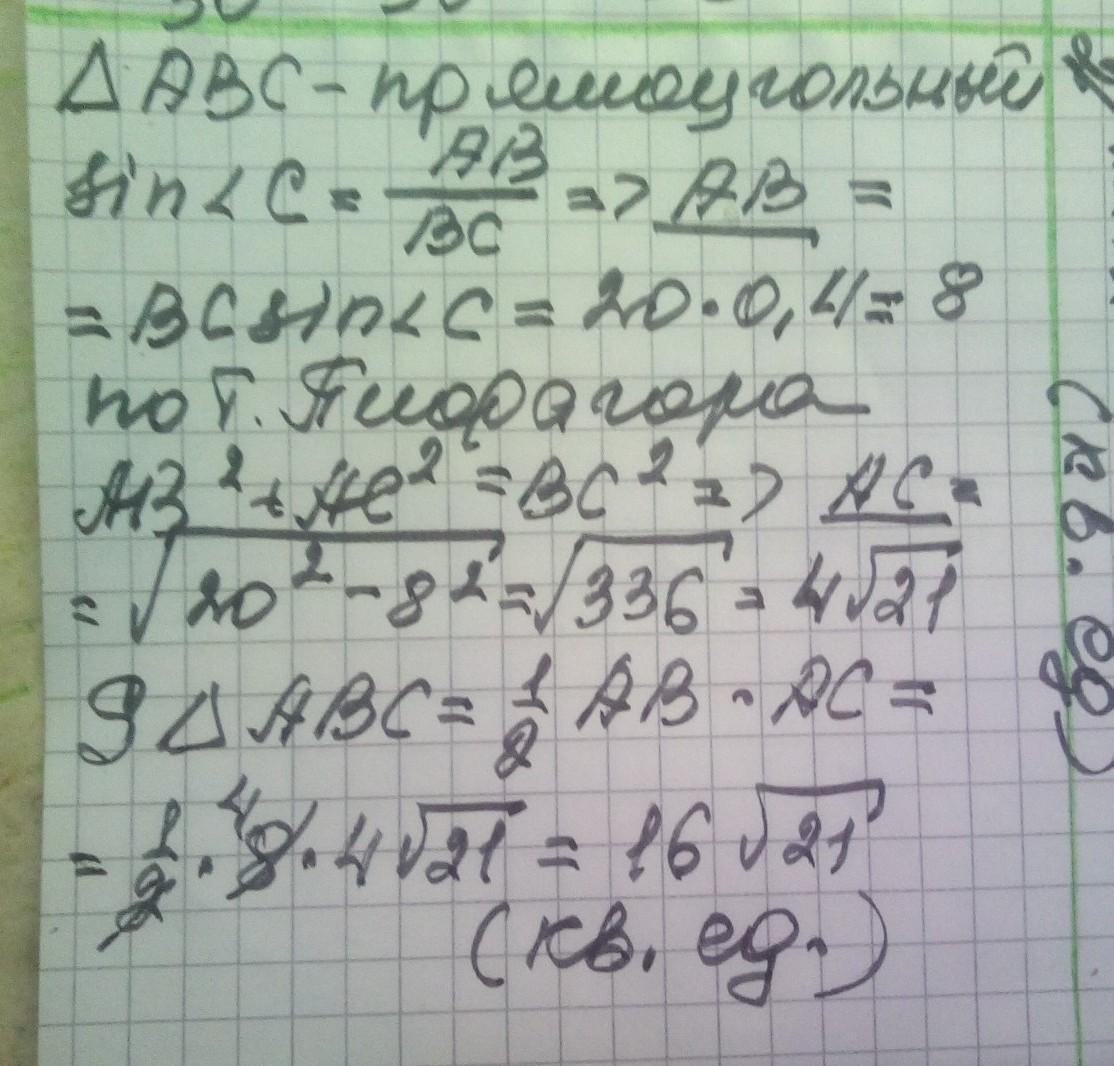 △ ABC - прямоугольный
sin< C = AB/BC => AB =
= BC sin< C = 20 · 0,4 = 8
по т. Пифагора
AB² + AC² = BC² => AC =
= √(20² - 8²) = √336 = 4√21
S △ ABC = 1/2 AB · AC =
= 1/2 · 8 4 · 4√21 = 16 √21
(кв. ед.)
(кв. ед)